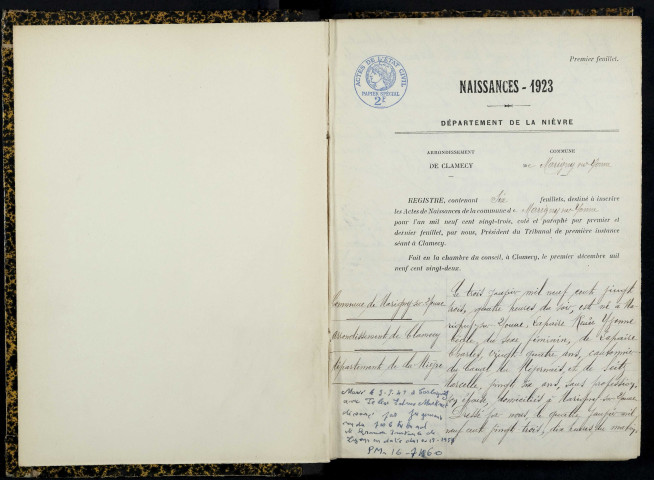 Premier feuillet.
ACTES DE L'ÉTAT CIVIL
PAPIER SPÉCIAL
2F
NAISSANCES - 1923
DÉPARTEMENT DE LA NIÈVRE
ARRONDISSEMENT
DE CLAMECY
COMMUNE
DE Marigny-sur-Yonne
REGISTRE, contenant Six feuillets, destiné à inscrire
les Actes de Naissances de la commune de Marigny-sur-Yonne
pour l'an mil neuf cent vingt-trois, coté et paraphé par premier et
dernier feuillet, par nous, Président du Tribunal de première instance
séant à Clamecy.
Fait en la chambre du conseil, à Clamecy, le premier décembre mil
neuf cent vingt-deux.
Commune de Marigny-sur-Yonne
Arrondissement de Clamecy
Département de la Nièvre
Le trois janvier mil neuf cent vingt
trois, quatre heures du soir, est né à Ma
rigny-sur-Yonne, Lapaire Renée Yvonne
du sexe féminin, de Lapaire
Charles, vingt quatre ans, cantonnier
du Canal du Nivernais, et de
Marcelle, vingt six ans, sans profession,
son épouse, domiciliés à Marigny-sur-Yonne.
Dressé par nous, le quatre janvier mil
neuf cent vingt-trois, dix heures du matin,
Marié le
avec
par jugement
rendu par le tribunal
de Grande Instance de
Lyon en date du
PM. 16-7-1960